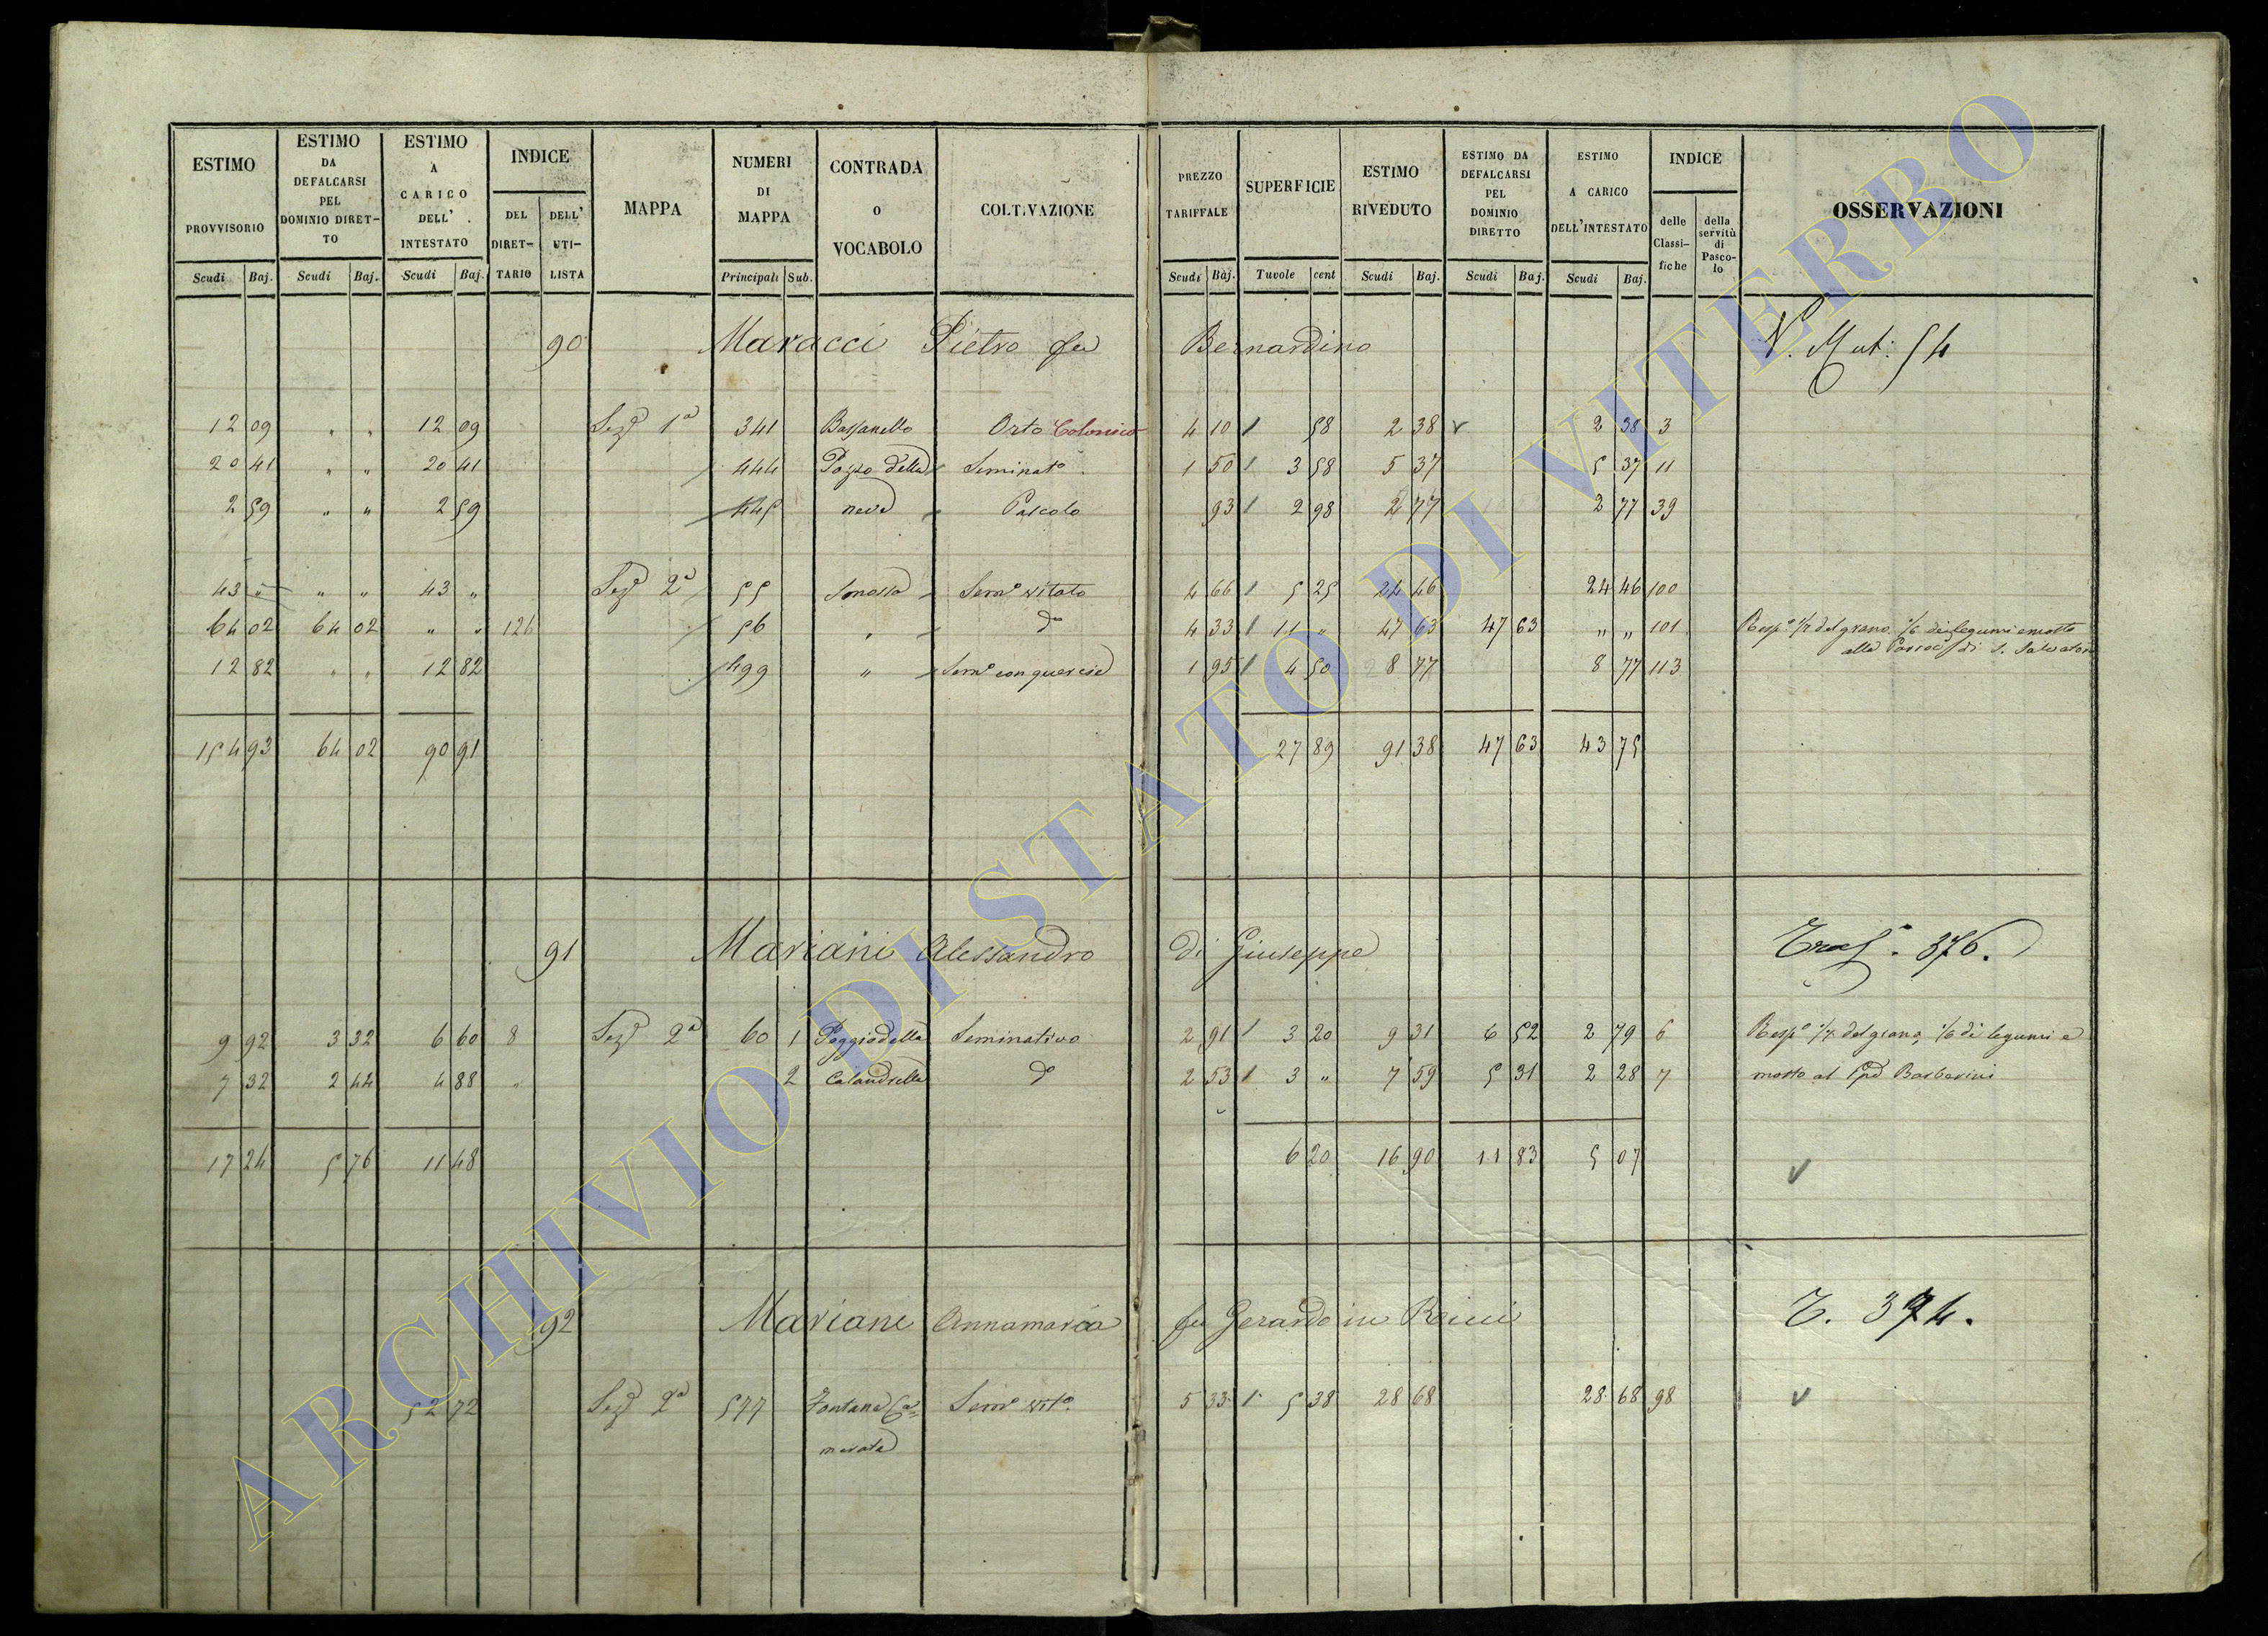 ESTIMO PROVVISORIO Scudi Baj.
ESTIMO DA DEFALCARSI PEL DOMINIO DIRETTO Scudi Baj.
ESTIMO A CARICO DELL' INTESTATO Scudi Baj.
INDICE DEL DIRETTARIO DELL' UTILISTA
MAPPA
NUMERI DI MAPPA Principali Sub.
CONTRADA O VOCABOLO
COLTIVAZIONE
PREZZO TARIFFALE Scudi Baj.
SUPERFICIE Tavole cent
ESTIMO RIVEDUTO Scudi Baj.
ESTIMO DA DEFALCARSI PEL DOMINIO DIRETTO Scudi Baj.
ESTIMO A CARICO DELL'INTESTATO Scudi Baj.
INDICE delle Classifiche della servitù di Pascolo
OSSERVAZIONI
90 Maracci Pietro fu Bernardino N. Mut: 54
12 09 " " 12 09 Sez.e 1a 341 Bassanello Orto Colonico 4 10 58 2 38 2 38 3
20 41 " " 20 41 444 Pozzo della Seminato 1 50 3 58 5 37 5 37 11
2 59 " " 2 59 445 neve Pascolo 93 2 98 2 77 2 77 39
43 " " " 43 " Sez.e 2a 55 Sem.o vitato 4 66 5 25 24 46 24 46 100
64 02 64 02 " " 126 56 " d.o 4 33 11 " 47 63 47 63 " " 101 Risp.e 1/7 del grano 1/6 dei legumi e mosto
alla di S. Salvatore
12 82 " " 12 82 499 " Sem.o con querce 1 95 4 50 8 77 8 77 113
154 93 64 02 90 91 27 89 91 38 47 63 43 75
91 Mariani Alessandro di Giuseppe Trasf. 376.
9 92 3 32 6 60 8 Sez.e 2a 60 1 Poggio della Seminativo 2 91 3 20 9 31 6 52 2 79 6 Risp.e 1/7 del grano, 1/6 di legumi e
7 32 2 44 4 88 " 2 Calandrella d.o 2 53 3 " 7 59 5 31 2 28 7 mosto al Barberini
17 24 5 76 11 48 6 20 16 90 11 83 5 07
92 Mariani Annamaria fu Gerardo in T. 374.
52 72 Sez.e 2a 577 Fontana Ca= Sem.o vit.o 5 33 5 38 28 68 28 68 98
merata
ARCHIVIO DI STATO DI VITERBO